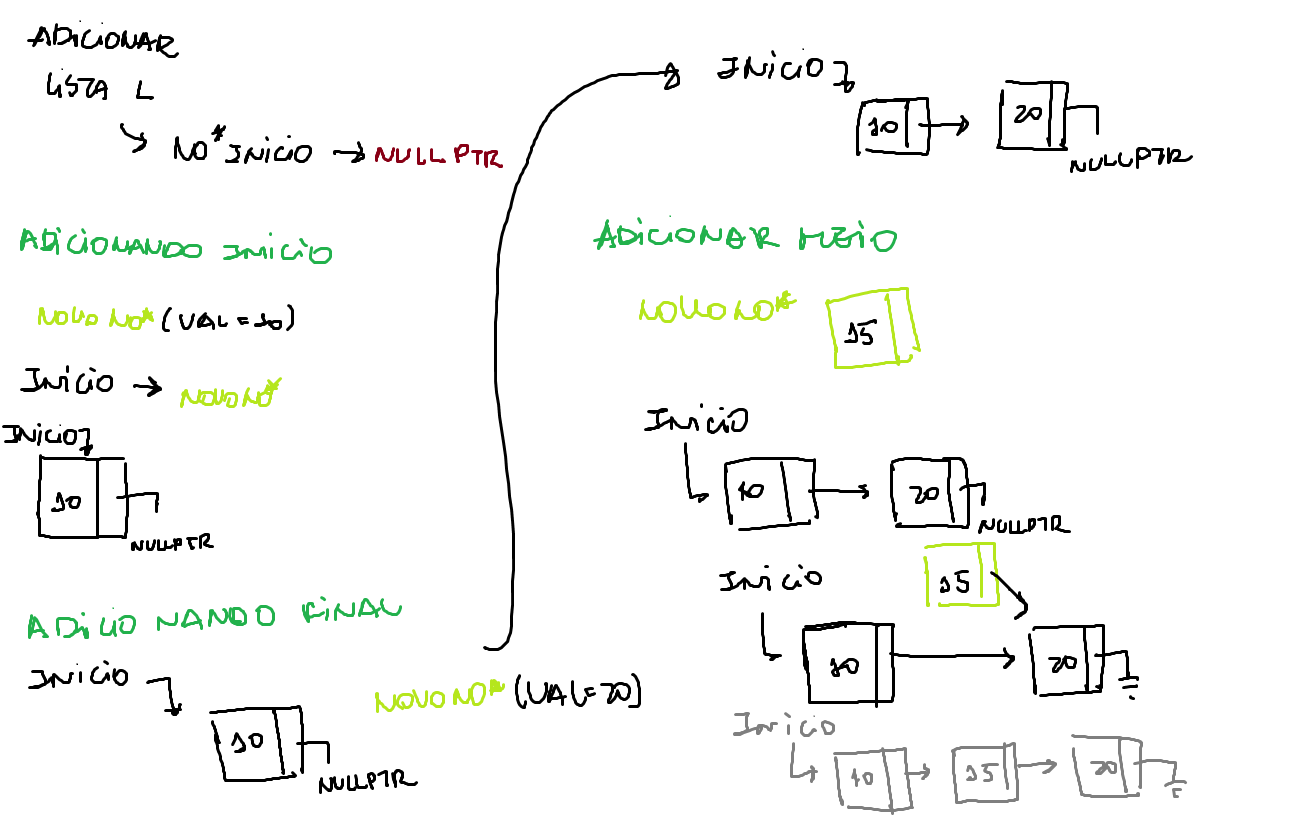 ADICIONAR
LISTA L
NO* INICIO → NULLPTR
ADICIONANDO INICIO
NOVO NO* (VAL = 10)
INICIO → NOVO NO*
INICIO
10
NULLPTR
ADICIONANDO FINAL
INICIO
10
NULLPTR
NOVO NO* (VAL=20)
INICIO
10 → 20
NULLPTR
ADICIONAR MEIO
NOVO NO* 15
INICIO
10 → 20
NULLPTR
15
INICIO
10 → 20
INICIO
10 → 15 → 20